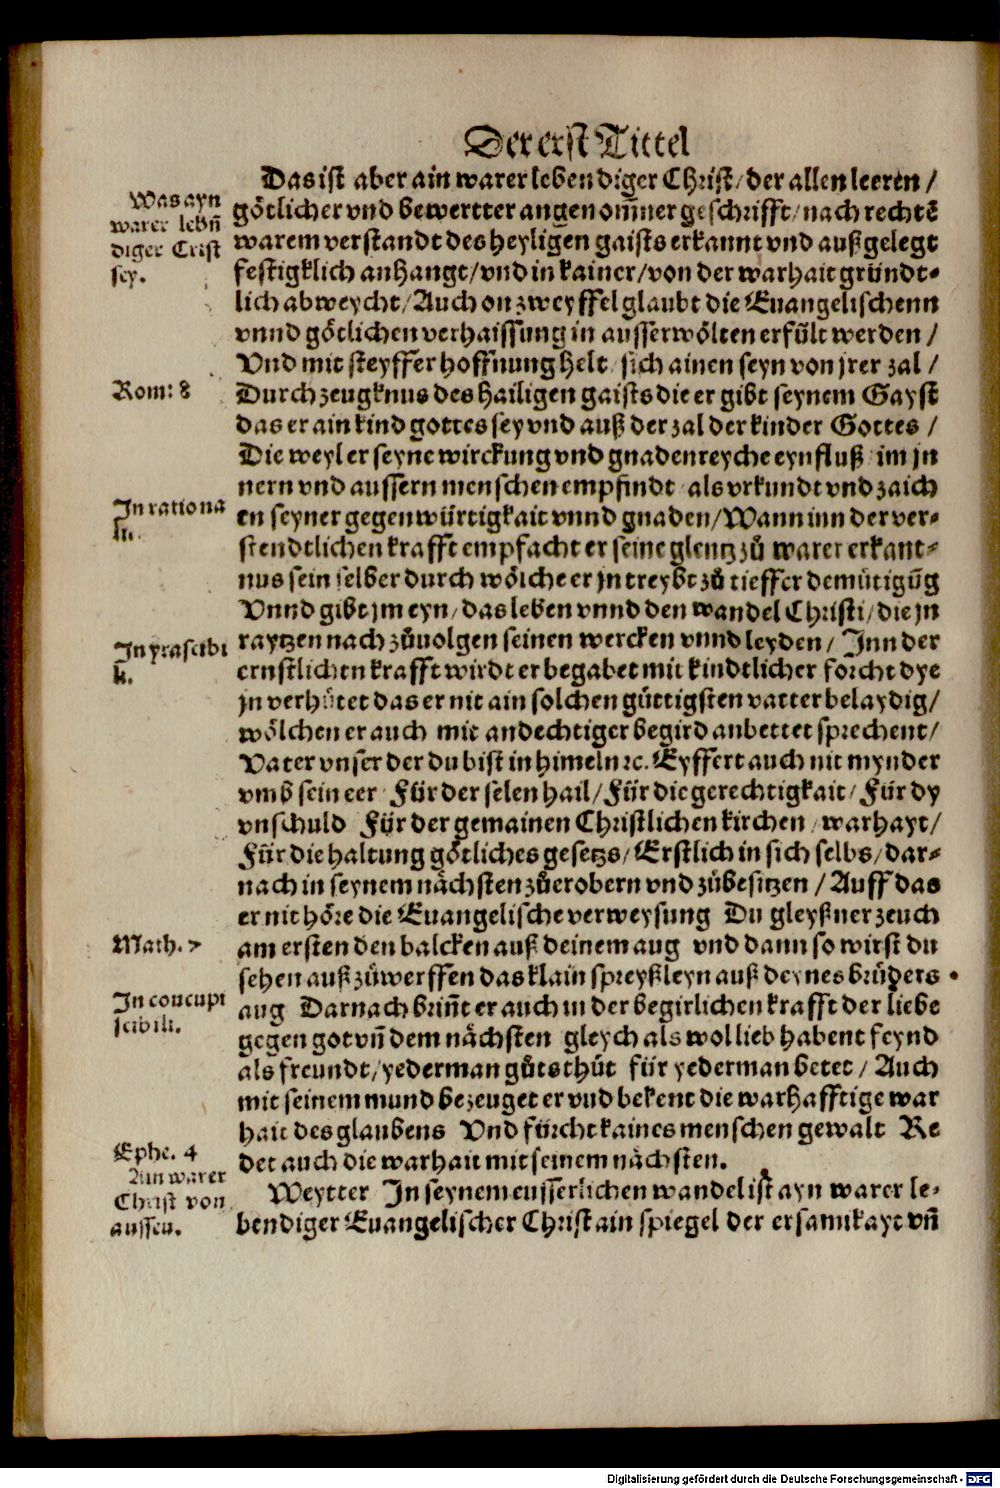 Der erst Tittel
Das ist aber ain warer lebendiger Christ/der allen leeren/
götlicher vnd bewertter angenom̄ner geschrifft/nach rechtē
warem verstandt des heyligen gaists erkannt vnd außgelegt
festigklich anhangt/vnd in kainer/von der warhait gründt-
lich abweycht/Auch on zweyffel glaubt die Euangelischenn
vnnd götlichen verhaissung in ausserwölten erfült werden/
Vnd mit steyffer hoffnung helt sich ainen seyn von jrer zal/
Durch zeugknus des hailigen gaists die er gibt seynem Gayst
das er ain kind gottes sey vnd auß der zal der kinder Gottes/
Die weyl er seyne wirckung vnd gnadenreyche eynfluß im jn
nern vnd aussern menschen empfindt als vrkundt vnd zaich
en seyner gegenwürtigkait vnnd gnaden/Wann inn der ver-
stendtlichen krafft empfacht er seine glentz zů warer erkant-
nus sein selber durch wölche er jn treybt zů tieffer demütigūg
Vnnd gibt jm eyn/das leben vnnd den wandel Christi/die jn
raytzen nach zůuolgen seinen wercken vnnd leyden/Inn der
ernstlichen krafft wirdt er begabet mit kindtlicher forcht dye
jn verhůtet das er nit ain solchen güttigsten vatter belaydig/
wölchen er auch mit andechtiger begird anbettet sprechent/
Vater vnser der du bist in himeln ꝛc. Eyffert auch nit mynder
vmb sein eer Für der selen hail/Für die gerechtigkait/Für dy
vnschuld Für der gemainen Christlichen kirchen/warhayt/
Für die haltung götliches gesetzs/Erstlich in sich selbs/dar-
nach in seynem nächsten zůerobern vnd zůbesitzen/Auff das
er nit höre die Euangelische verweysung Du gleyßner zeuch
am ersten den balcken auß deinem aug vnd dann so wirst du
sehen auß zůwerffen das klain spreyßleyn auß deynes brůders
aug Darnach brin̄t er auch in der begirlichen krafft der liebe
gegen got vn̄ dem nächsten gleych als wol lieb habent feynd
als freundt/yederman gůts thůt für yederman betet/Auch
mit seinem mund bezeuget er vnd bekent die warhafftige war
hait des glaubens Vnd fürcht kaines menschen gewalt Re
det auch die warhait mit seinem nächsten.
Weytter In seynem eusserlichen wandel ist ayn warer le-
bendiger Euangelischer Christ ain spiegel der ersamkayt vn̄
Was ayn
warer lebn̄
diger Crist
sey.
Rom: 8
In rationa
li.
In yrascibi
li.
Math. 7
In concupi
scibili.
Ephe. 4
Ain warer
Christ von
aussen.
Digitalisierung gefördert durch die Deutsche Forschungsgemeinschaft - DFG